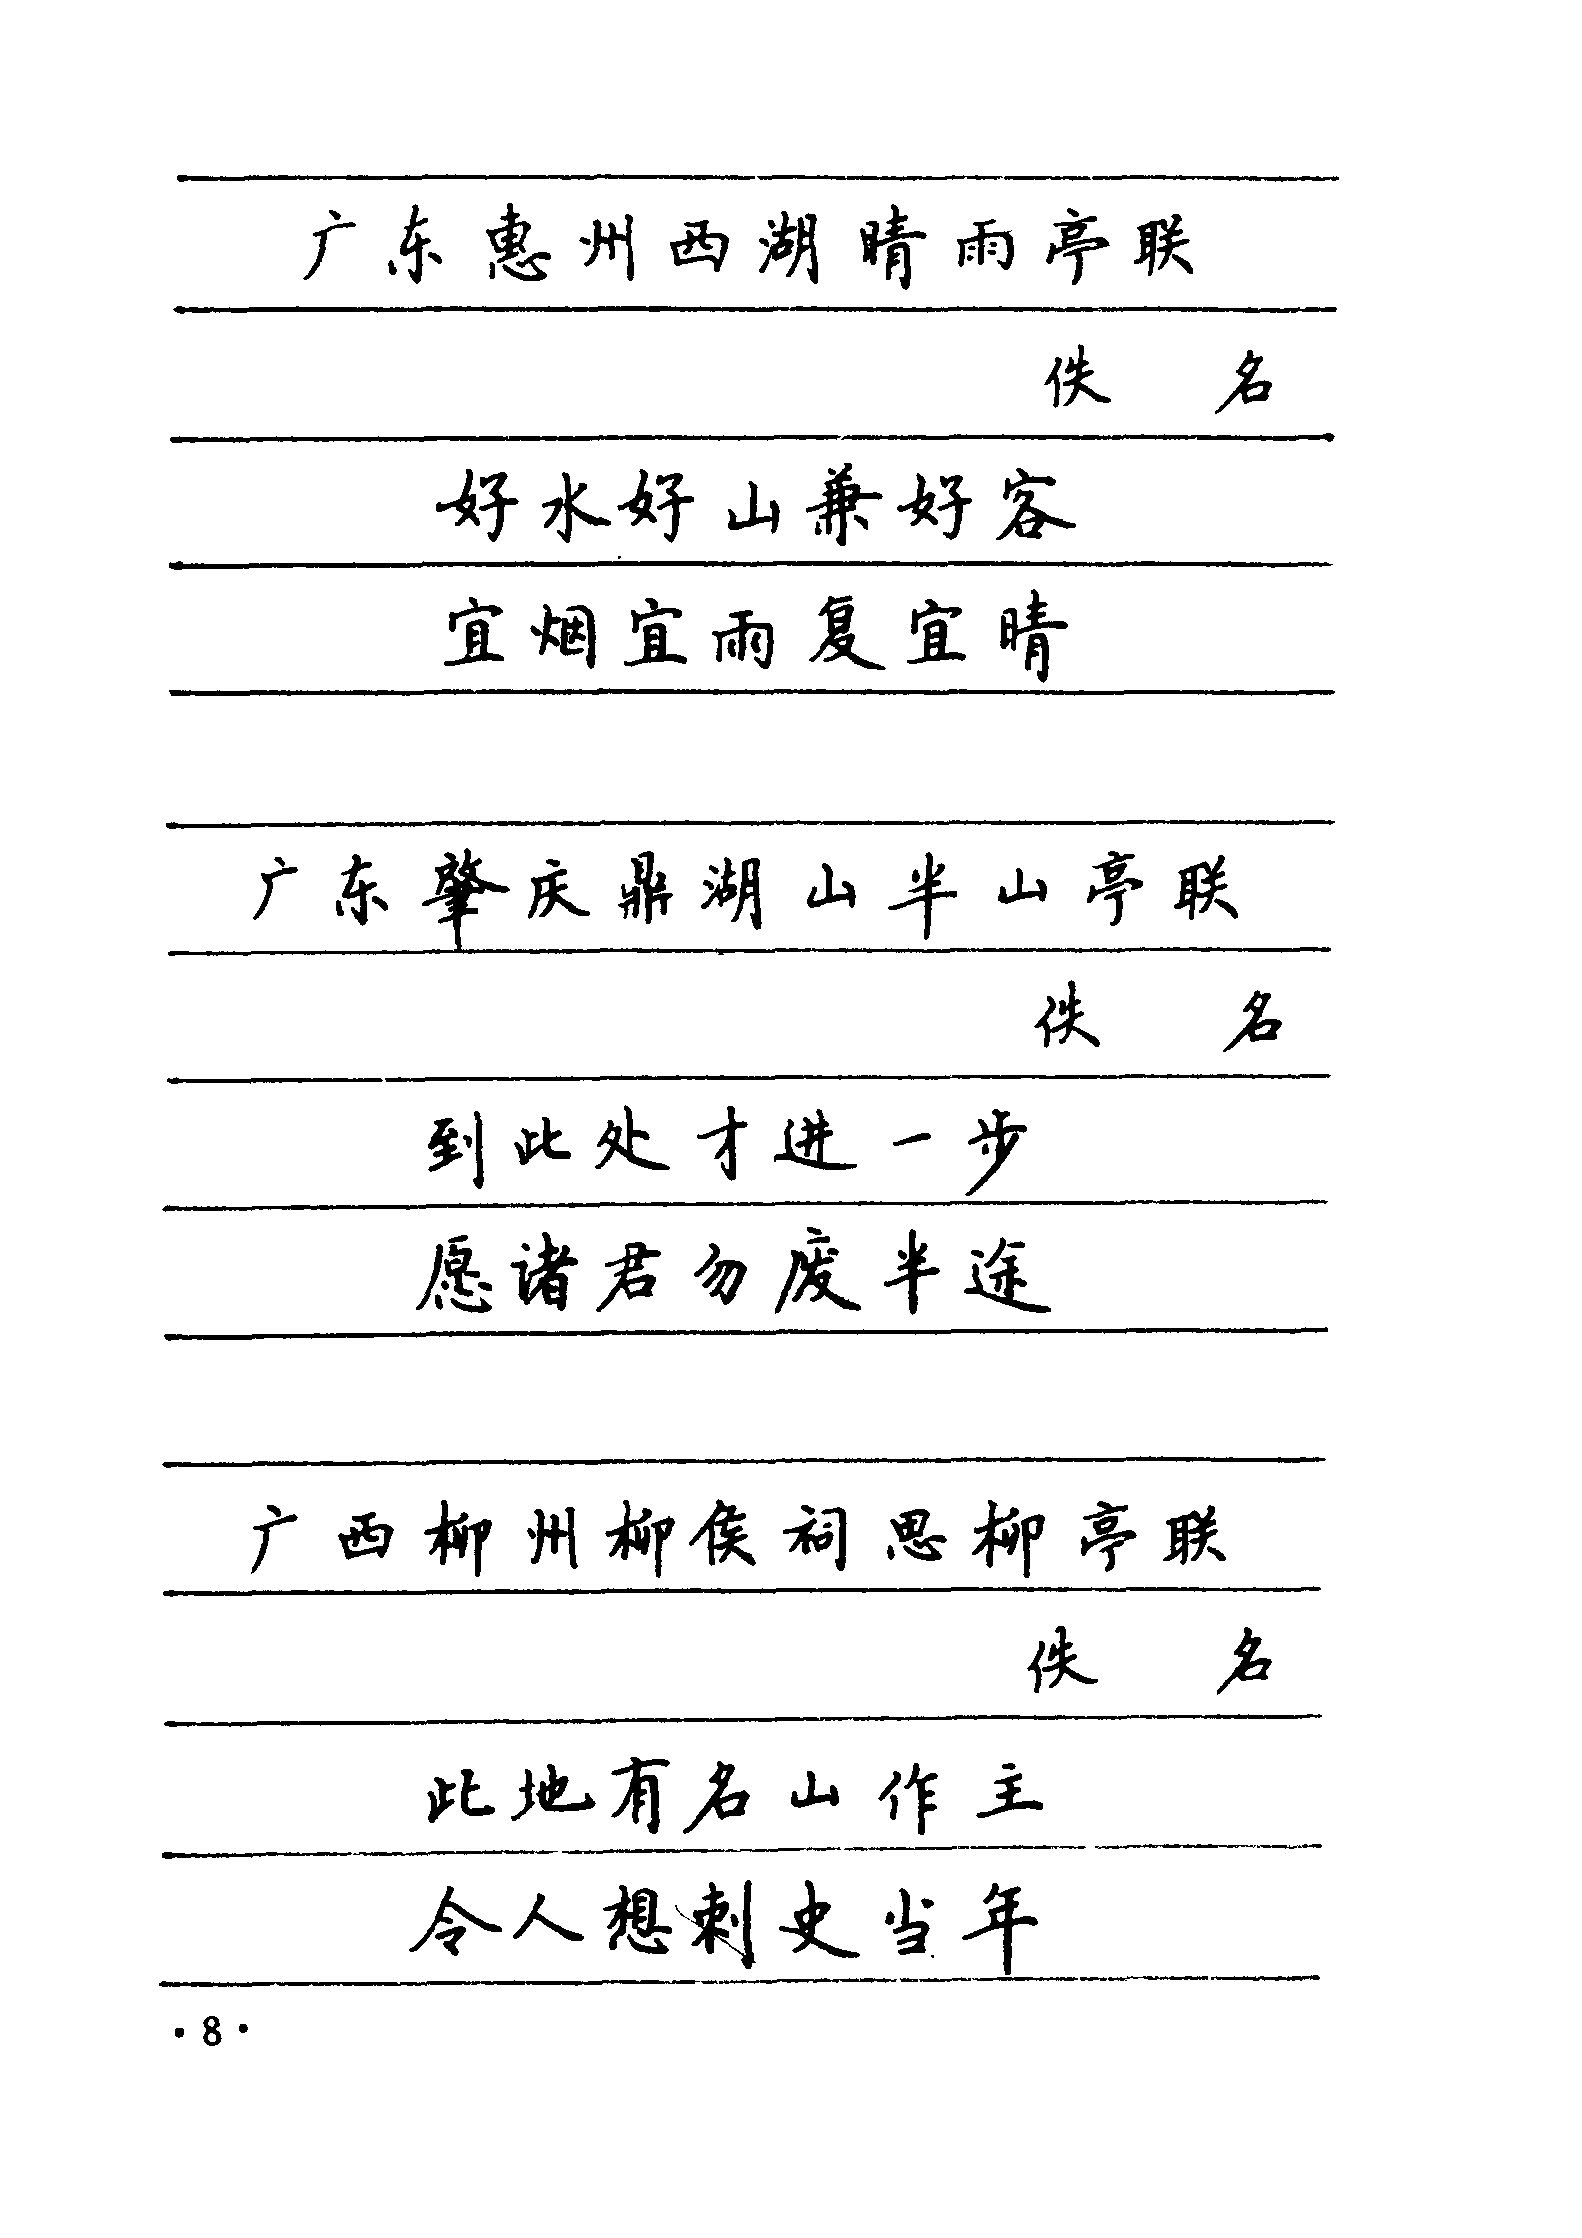 广东惠州西湖晴雨亭联
佚 名
好水好山兼好客
宜烟宜雨复宜晴
广东肇庆鼎湖山半山亭联
佚 名
到此处才进一步
愿诸君勿废半途
广西柳州柳侯祠思柳亭联
佚 名
此地有名山作主
令人想刺史当年
·8·